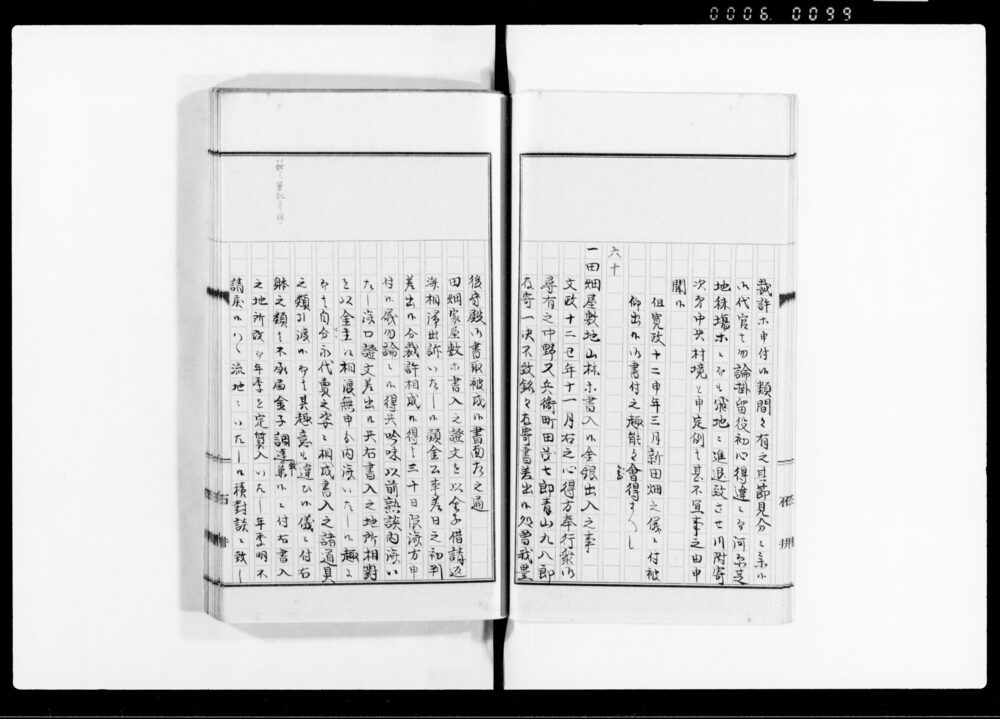 0006 0099
裁許ホ申付候類間々有之其節見分ニ参候
御代官ニ而勿論掛留役初心得違ニ而河原芝
地秣場ホニ而も飛地ニ進退致させ川附寄
次第中央村境と申定例ニ者甚不宜事之由申
聞候
但寛政十二申年三月新田畑之儀ニ付被
仰出候御書付之趣能々会得すへし
六十
一田畑屋敷地山林ホ書入候金銀出入之事
文政十二丑年十一月右之心得方奉行衆御
尋有之中野又兵衛町田忠七郎青山九八郎
在寄一決不致銘々在寄書差出候処曽我豊
後守殿御書取被成候書面左之通
田畑家屋敷ホ書入之證文を以金子借請返
済相滞出訴いたし候類金公事差日之初判
差出候分裁許相成候得者三十日限済方申
付候儀勿論ニ候得共吟味以前熟談内済い
たし済口證文差出候共右書入之地所相対
を以金主江相渡無申分内済いたし候趣ニ
而者自分永代売之姿ニ相成書入之諸道具
之類引渡候与者其趣意も違ひ候儀ニ付右
躰之類者不承届金子調達兼候ニ付右書入
之地所改而年季を定質入いたし年季明不
請戻候ハヽ流地ニいたし候積対談ニ致し